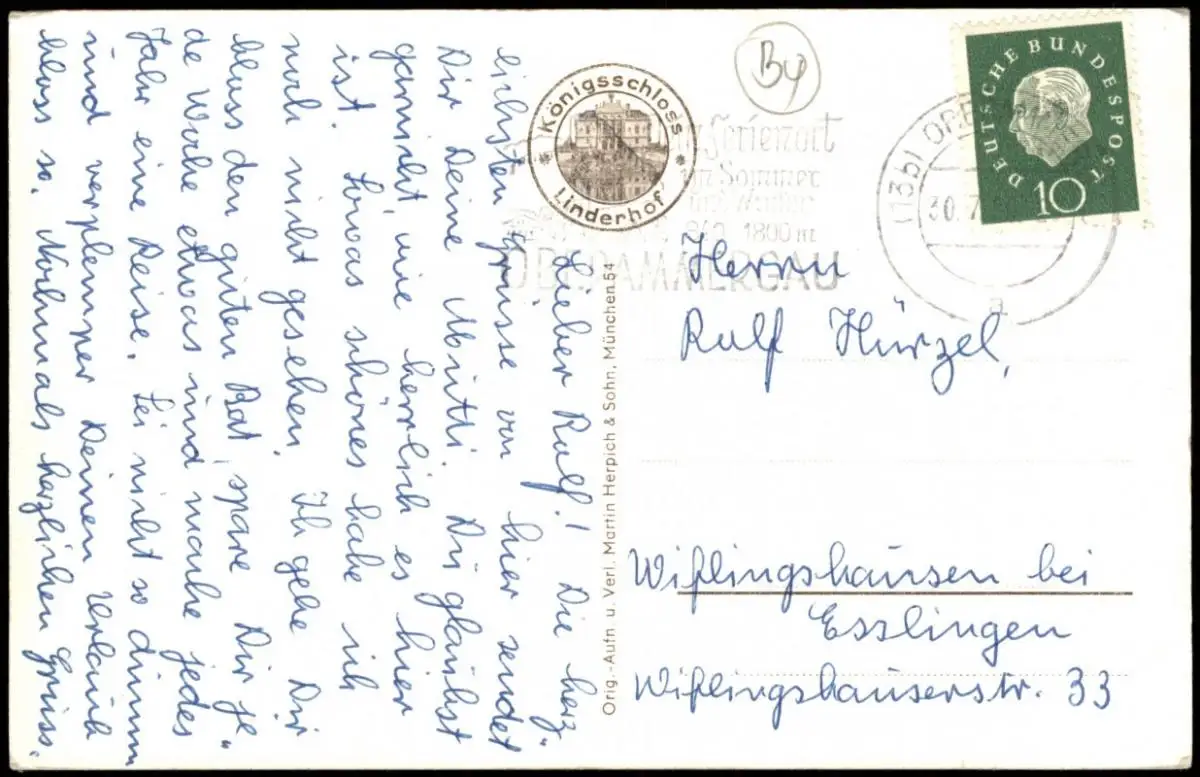 Lieber Rulf! Die herz„
lichsten Grüsse von hier sendet
Dir Deine Mutti. Du glaubst
garnicht, wie herrlich es hier
ist. Sowas schönes habe ich
noch nicht gesehen. Ich gebe Dir
bluss den guten Rat, spare Dir je„
de Woche etwas und mache jedes
Jahr eine Reise. Sei nicht so dumm
und verplemper Deinen Urlaub
bluss so. Nochmals herzlichen Gruss.
Königsschloss
Linderhof
Orig.-Aufn. u. Verl. Martin Herpich & Sohn, München 54
By
Ferienort
im Sommer
und Winter
1800 m
OBERAMMERGAU
(13b) OBE
30.7
a
DEUTSCHE BUNDESPOST
10
Herrn
Rulf Hürzel,
Wiflingshausen bei
Esslingen
Wiflingshauserstr. 33